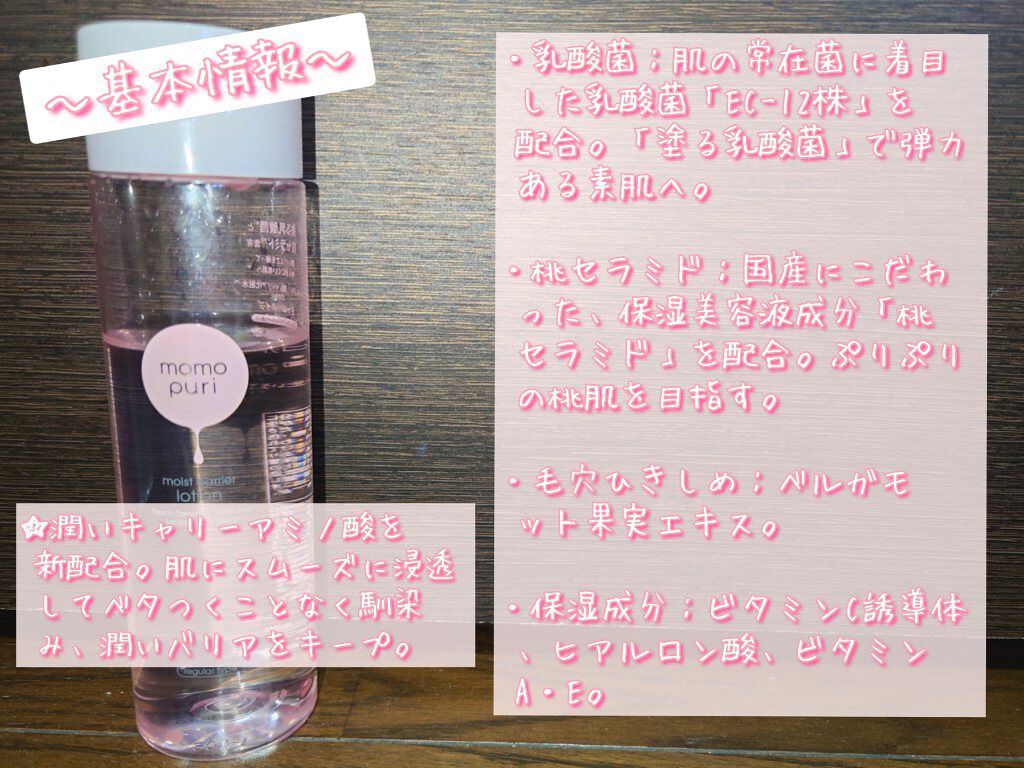 〜基本情報〜
・乳酸菌；肌の常在菌に着目
した乳酸菌「EC-12株」を
配合。「塗る乳酸菌」で弾力
ある素肌へ。
・桃セラミド；国産にこだわ
った、保湿美容液成分「桃
セラミド」を配合。ぷりぷり
の桃肌を目指す。
・毛穴ひきしめ；ベルガモ
ット果実エキス。
・保湿成分；ビタミンC誘導体
、ヒアルロン酸、ビタミン
A・E。
momo
puri
moist barrier
lotion
☆潤いキャリーアミノ酸を
新配合。肌にスムーズに浸透
してベタつくことなく馴染
み、潤いバリアをキープ。
regular type